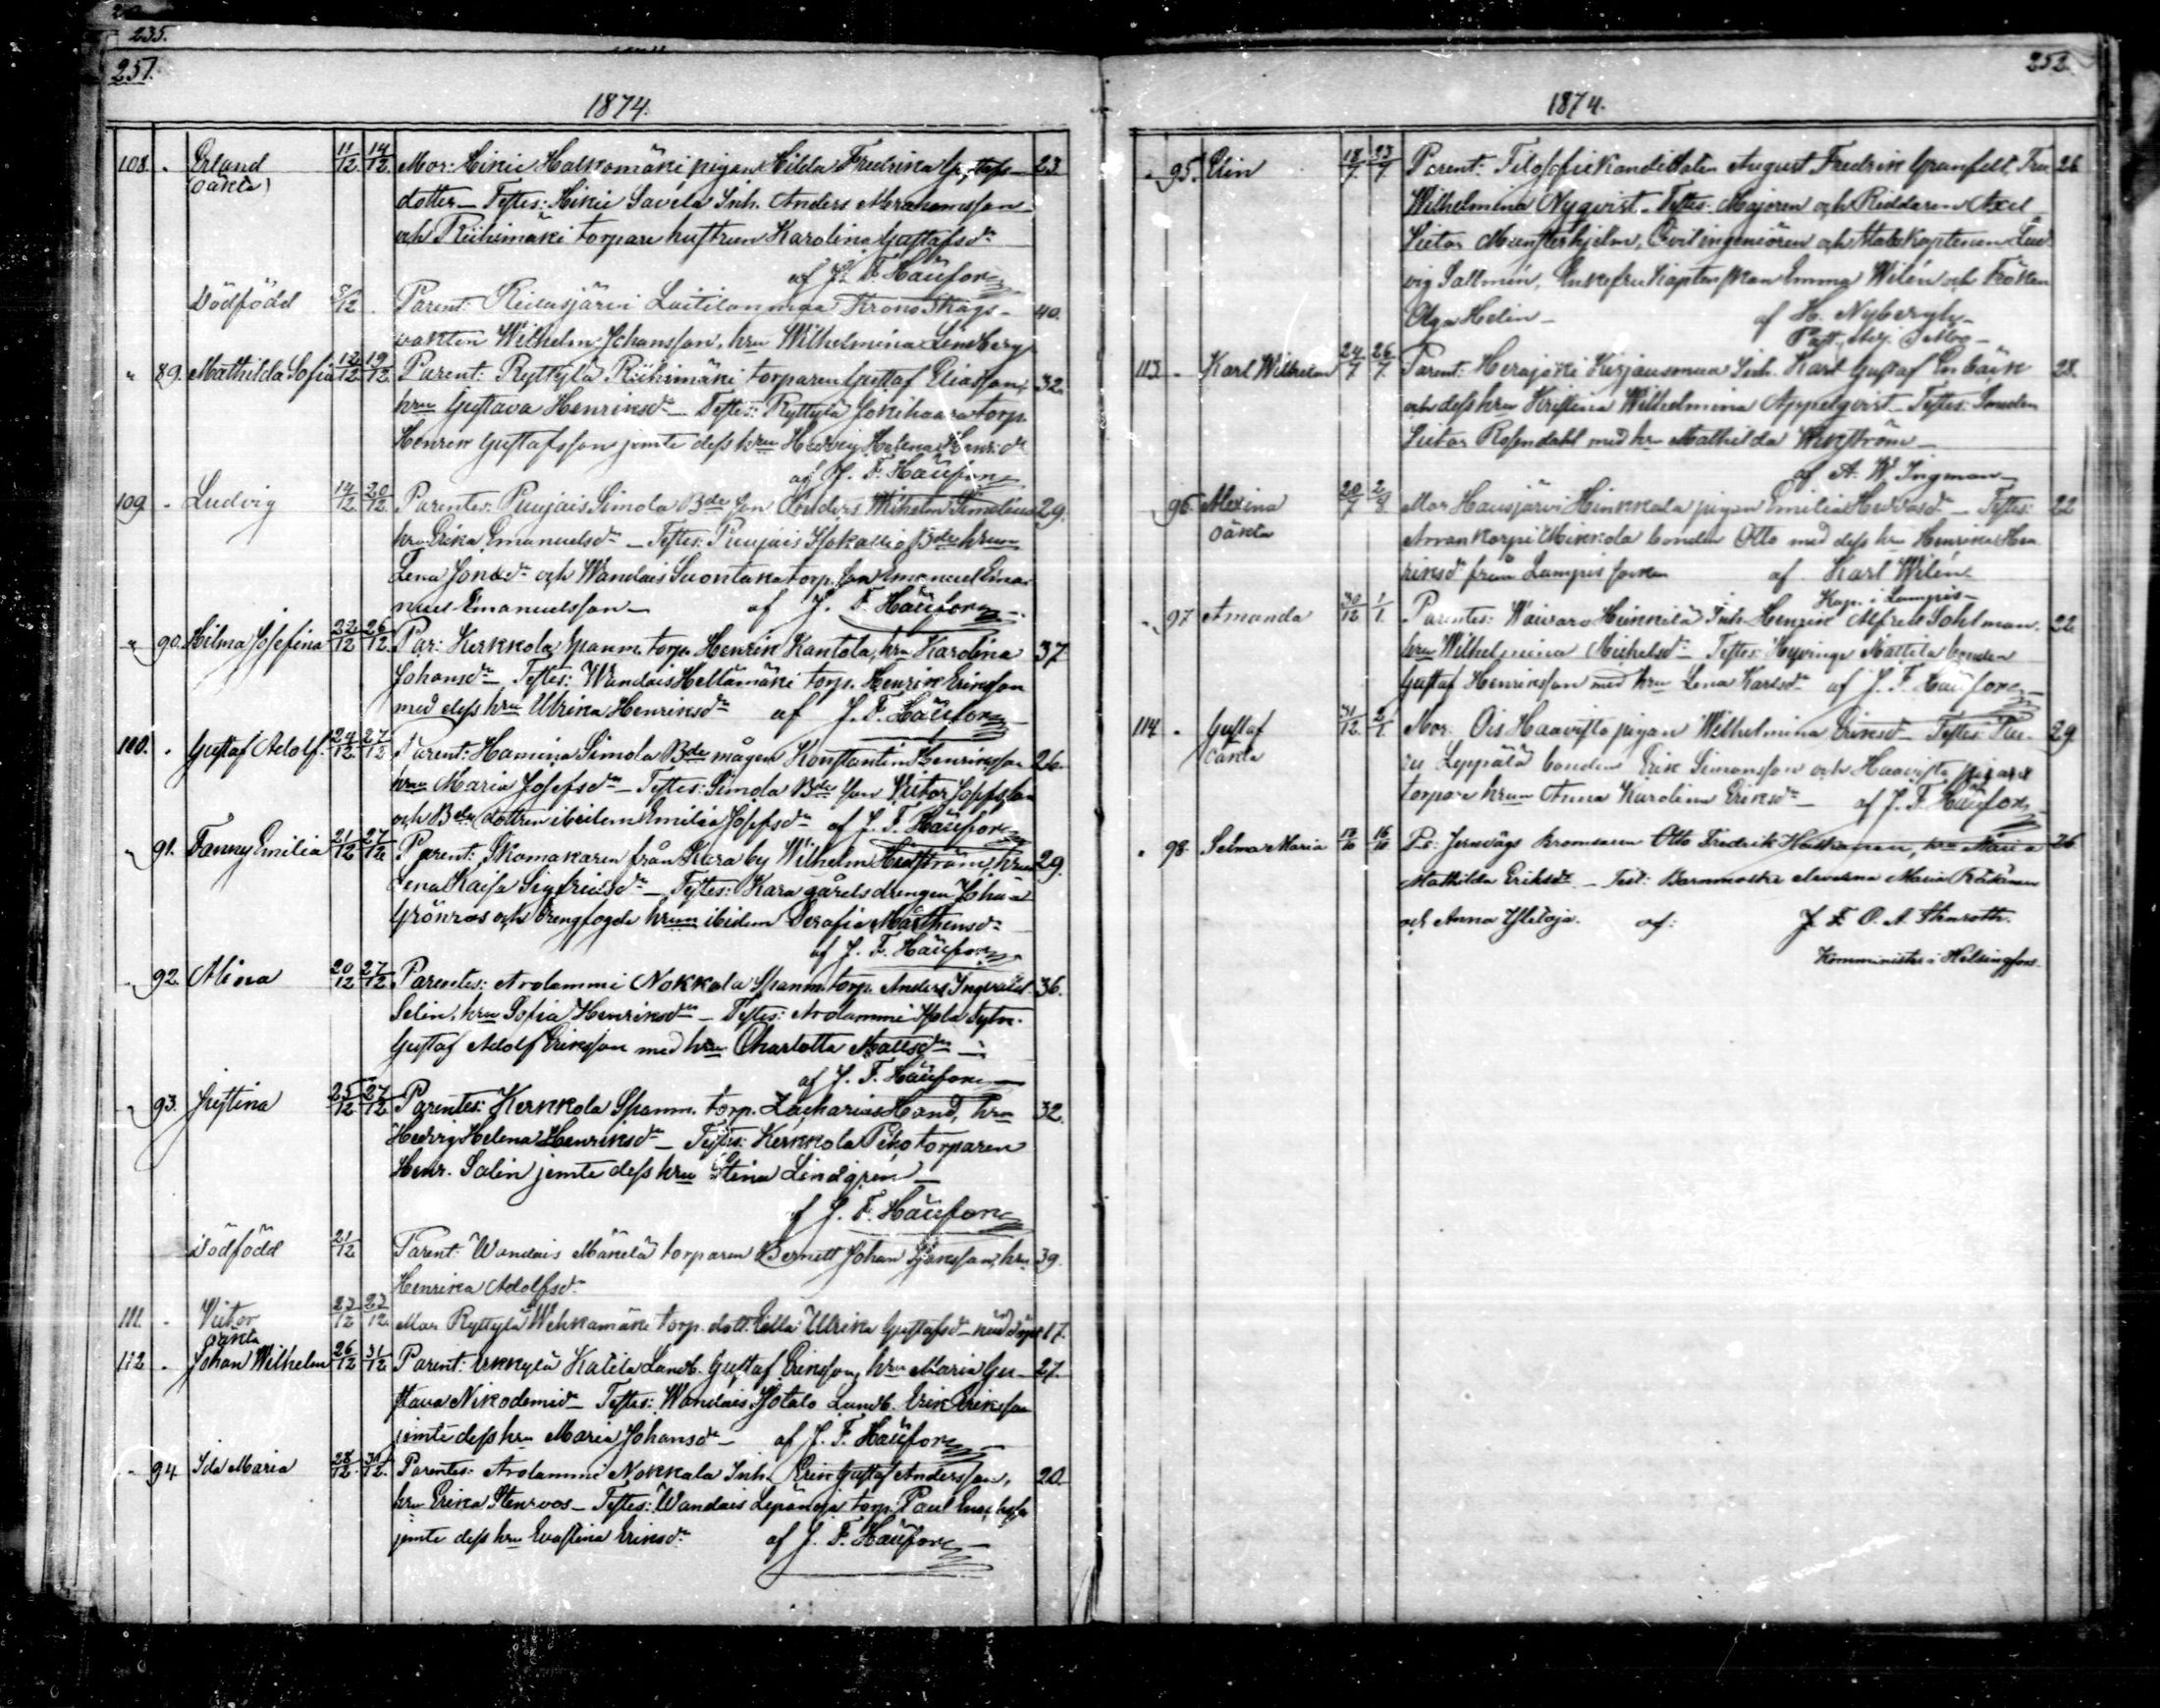 235.
251.
1874.
108. - Erland 11/12 14/12 Mor: Hikiä Halkomäki pigan Hilda Fredrika Gustafs- 23
(oäkta) dotter - Testes: Hikiä Savela Inh. Anders Abrahamsson
och Riihimäki torpare hustrun Karolina Gustafsdr
af J. F. Häufor
Dödfödd 8/12 . Parent: Laitilanmaa Krono Skogs- 40.
vakten Wilhelm Johansson, hru Wilhelmina Lindberg
" 89. Mathilda Sofia 12/12 19/12 Parent: Ryttylä Riihimäki torparen Gustaf Eliasson, 32.
hru Gustava Henriksdr - Testes: Ryttylä Jokihaara torp.
Henrik Gustafsson jemte dess hru Hedvig Helena Henr.dr
af J. F. Häufor
109 - Ludvig 14/12 20/12 Parentes: Puujais Simola Bde son Anders Wilhelm Simelius 29.
hru Erika Emanuelsdr - Testes: Puujais Isokallio Bde hrun
Lena Jonaedr och Wandais Suontaka torp. son Emanuel Ema-
nuel Emanuelsson - af J. F. Häufor
" 90. Hilma Josefina 22/12 26/12 Par: Kerkkola Spanm. torp. Henrik Kantola, hru Karolina 37
Johansdr Testes: Wandais Hellämäki torp. Henrik Eriksson
med dess hru Ulrika Henriksdr af J. F. Häufor
110. - Gustaf Adolf. 24/12 27/12 Parent: Hamina Simola Bde mågen Konstantin Henriksson 26.
hru Maria Josefsdr - Testes: Simola Bde son Viktor Josefsson
och Bde dottren ibidem Emilia Josefsdr af J. F. Häufor
" 91. Fanny Emilia 21/12 27/12 Parent: Skomakaren från Kara by Wilhelm hrun 29.
Lena Kaisa Sigfridsdr - Testes: Kara gårds drengen Johan
Grönroos och Drengfogde hrun ibidem Serafia Mårthensdr
af J. F. Häufor
" 92. Alina 20/12 27/12 Parentes: Arolammi Nokkala Spanm. torp. Anders Ingevald 36.
Selin, hru Sofia Henriksdr - Testes: Arolammi Isola Sytn.
Gustaf Adolf Eriksson med hru Charlotta Mattsdr -
af J. F. Häufor
" 93. Justina 25/12 27/12 Parentes: Kerkkola Spanm. torp. Zacharias Hand, hru 32.
Hedvig Helena Henriksdr - Testes: Kerkkola Peho torparen
Henr. Salin jemte dess hru Stina Lindgren -
af J. F. Häufor
Dödfödd 21/12 Parent: Wandais Mäkelä torparen Bernett Johan hru 39.
Henrika Adolfsdr
111. - Viktor 23/12 27/12 Mor Ryttylä Wehkamäki torp. dott. Ulrika Gustafsdr 17.
oäkta
112 - Johan Wilhelm 26/12 31/12 Parent: Erkkylä Katila Landb. Gustaf Eriksson, hru Maria Gu- 27.
stava Nikodemidr Testes: Wandais Isotalo Landb. Erik Eriksson
jemte dess hru Maria Johansdr - af J. F. Häufor
" 94. Ida Maria 28/12 31/12 Parentes: Arolammi Nokkala Inh. Erik Gustaf Andersson, 20.
hru Erika Stenroos - Testes: Wandais torp. Paul
jemte dess hru Evastina Eriksdr af J. F. Häufor
252.
1874.
" 95. Elin 18/7 23/7 Parent: Filosofiekandidaten August Fredrik Granfelt, Fru 26
Wilhelmina Nyqvist - Testes: Majoren och Riddaren Axel
Victor Munsterhjelm, Civilingeniören och Stabskaptenen Lud-
vig Sallmén, Enkefru Kaptenskan Emma Wilén och Fröken
Olga Helin - af H. Nybergh
113 - Karl Wilhelm 24/7 26/7 Parent: Herajoki Inh. Karl Gustaf 28.
och dess hru Kristina Wilhelmina Appelqvist - Testes: Smeden
Victor Rosendahl med hru Mathilda Wikström -
af A. W. Ingman
96. Alexina 20/7 2/8 Mor Hausjärvi Hinkkala pigan Emilia - Testes: 22
oäkta Mikkola bonden Otto med dess hru Henrika Hen-
riksdr från Lampis socken af Karl Wilén
Kap. i Lampis -
" 97 Amanda 30/12 1/1 Parentes: Inh. Henrik Alfred Sohlman. 22
hru Wilhelmina Michelsdr - Testes: Hyvinge Mattila bonden
Gustaf Henriksson med hru Lena Karlsdr af J. F. Häufor
114. - Gustaf 31/12 2/1 Mor Ois Haavisto pigan Wilhelmina Eriksdr - Testes: 29
oäkta Leppälä bonden Erik Simonsson och Haavisto
torpare hrun Anna Karolina Eriksdr - af J. F. Häufor
" 98. Selma Maria Par: Jernvägs bromsaren Otto Fredrik hru Maria 26
Mathilda Eriksdr - Test: Barnmorske eleverna Maria Räsänen
och Anna Yliloja. af: J. F. O. A. Stenroth.
Komminister i Helsingfors.